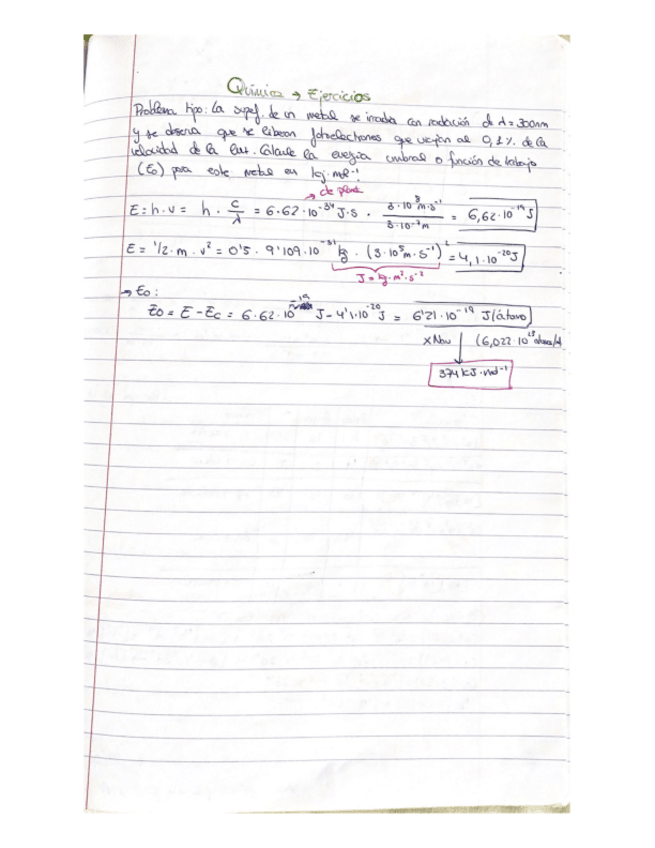 Química → Ejercicios
Problema tipo: La superf. de un metal se irradia con radiación de λ = 300nm
y se observa que se liberan fotoelectrones que viajan al 0,1%. de la
velocidad de la luz. Calcule la energía umbral o función de trabajo
(E₀) para este metal en kJ·mol⁻¹
→ de planck
E = h·ν = h · c/λ = 6'62·10⁻³⁴ J·s · 3·10⁸ m·s⁻¹ / 3·10⁻⁷ m = 6,62·10⁻¹⁹ J
E = 1/2 · m · v² = 0'5 · 9'109·10⁻³¹ kg · (3·10⁵ m·s⁻¹)² = 4,1·10⁻²⁰ J
J = kg·m²·s⁻²
→ E₀:
E₀ = E - Ec = 6'62·10⁻¹⁹ J - 4'1·10⁻²⁰ J = 6'21·10⁻¹⁹ J/átomo
x Nav (6,022·10²³
374 kJ·mol⁻¹